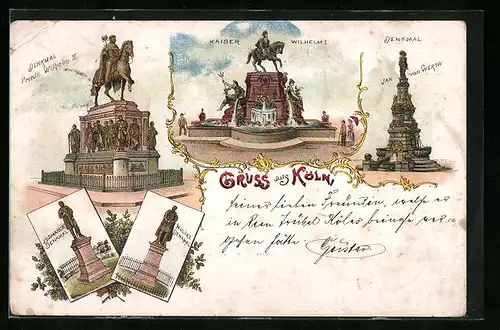 DENKMAL
Friedr. Wilhelm III.
KAISER WILHELM I
DENKMAL
JAN VON WERTH
GRUSS aus KÖLN,
BISMARCK
DENKMAL
MOLTKE
DENKMAL
seiner lieben Freundin, welche er
in dem Trubel Kölns beinahe ver-
gessen hätte.